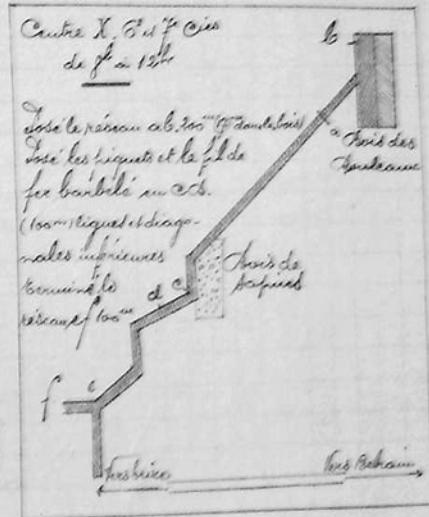 Centre X. 6e et 7e Cies
de 8h à 12h
Posé le réseau ab. 200m (dans le bois)
Posé les piquets et le fil de
fer barbelé en cd.
(100m) ligues et diago-
nales inférieures
terminé le
réseau ef 100m
b
a
Bois des
Bouleaux
Bois de
Sapins
d
c
e
f
Vers
Vers